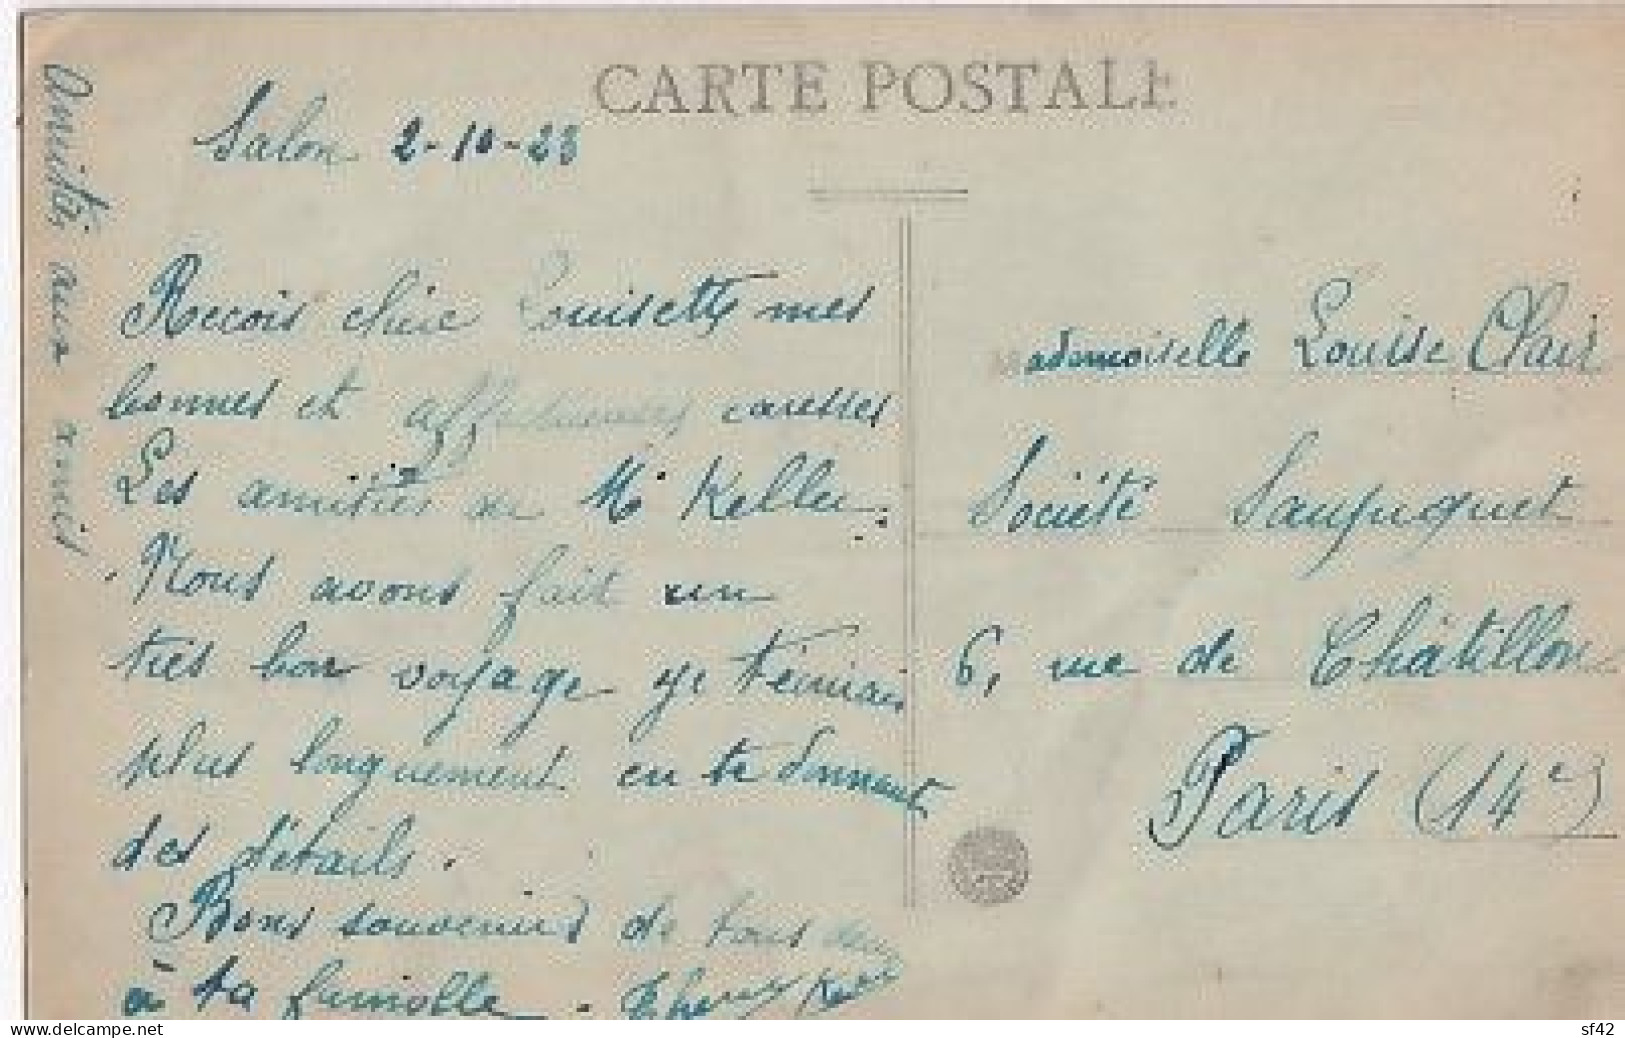 CARTE POSTALE
Salon 2-10-23
Reçois chère Louisette mes
bonnes et affectueuses caresses
Les amitiés au Mr Keller.
Nous avons fait un
très bon voyage je t'écrirai
plus longuement en te donnant
des détails.
Bons souvenirs de tous deux
à ta famille.
Amitiés aux amies
Mademoiselle Louise Clair
Société Saupiquet
6, rue de Châtillon
Paris (14e)
delcampe.net
sf42